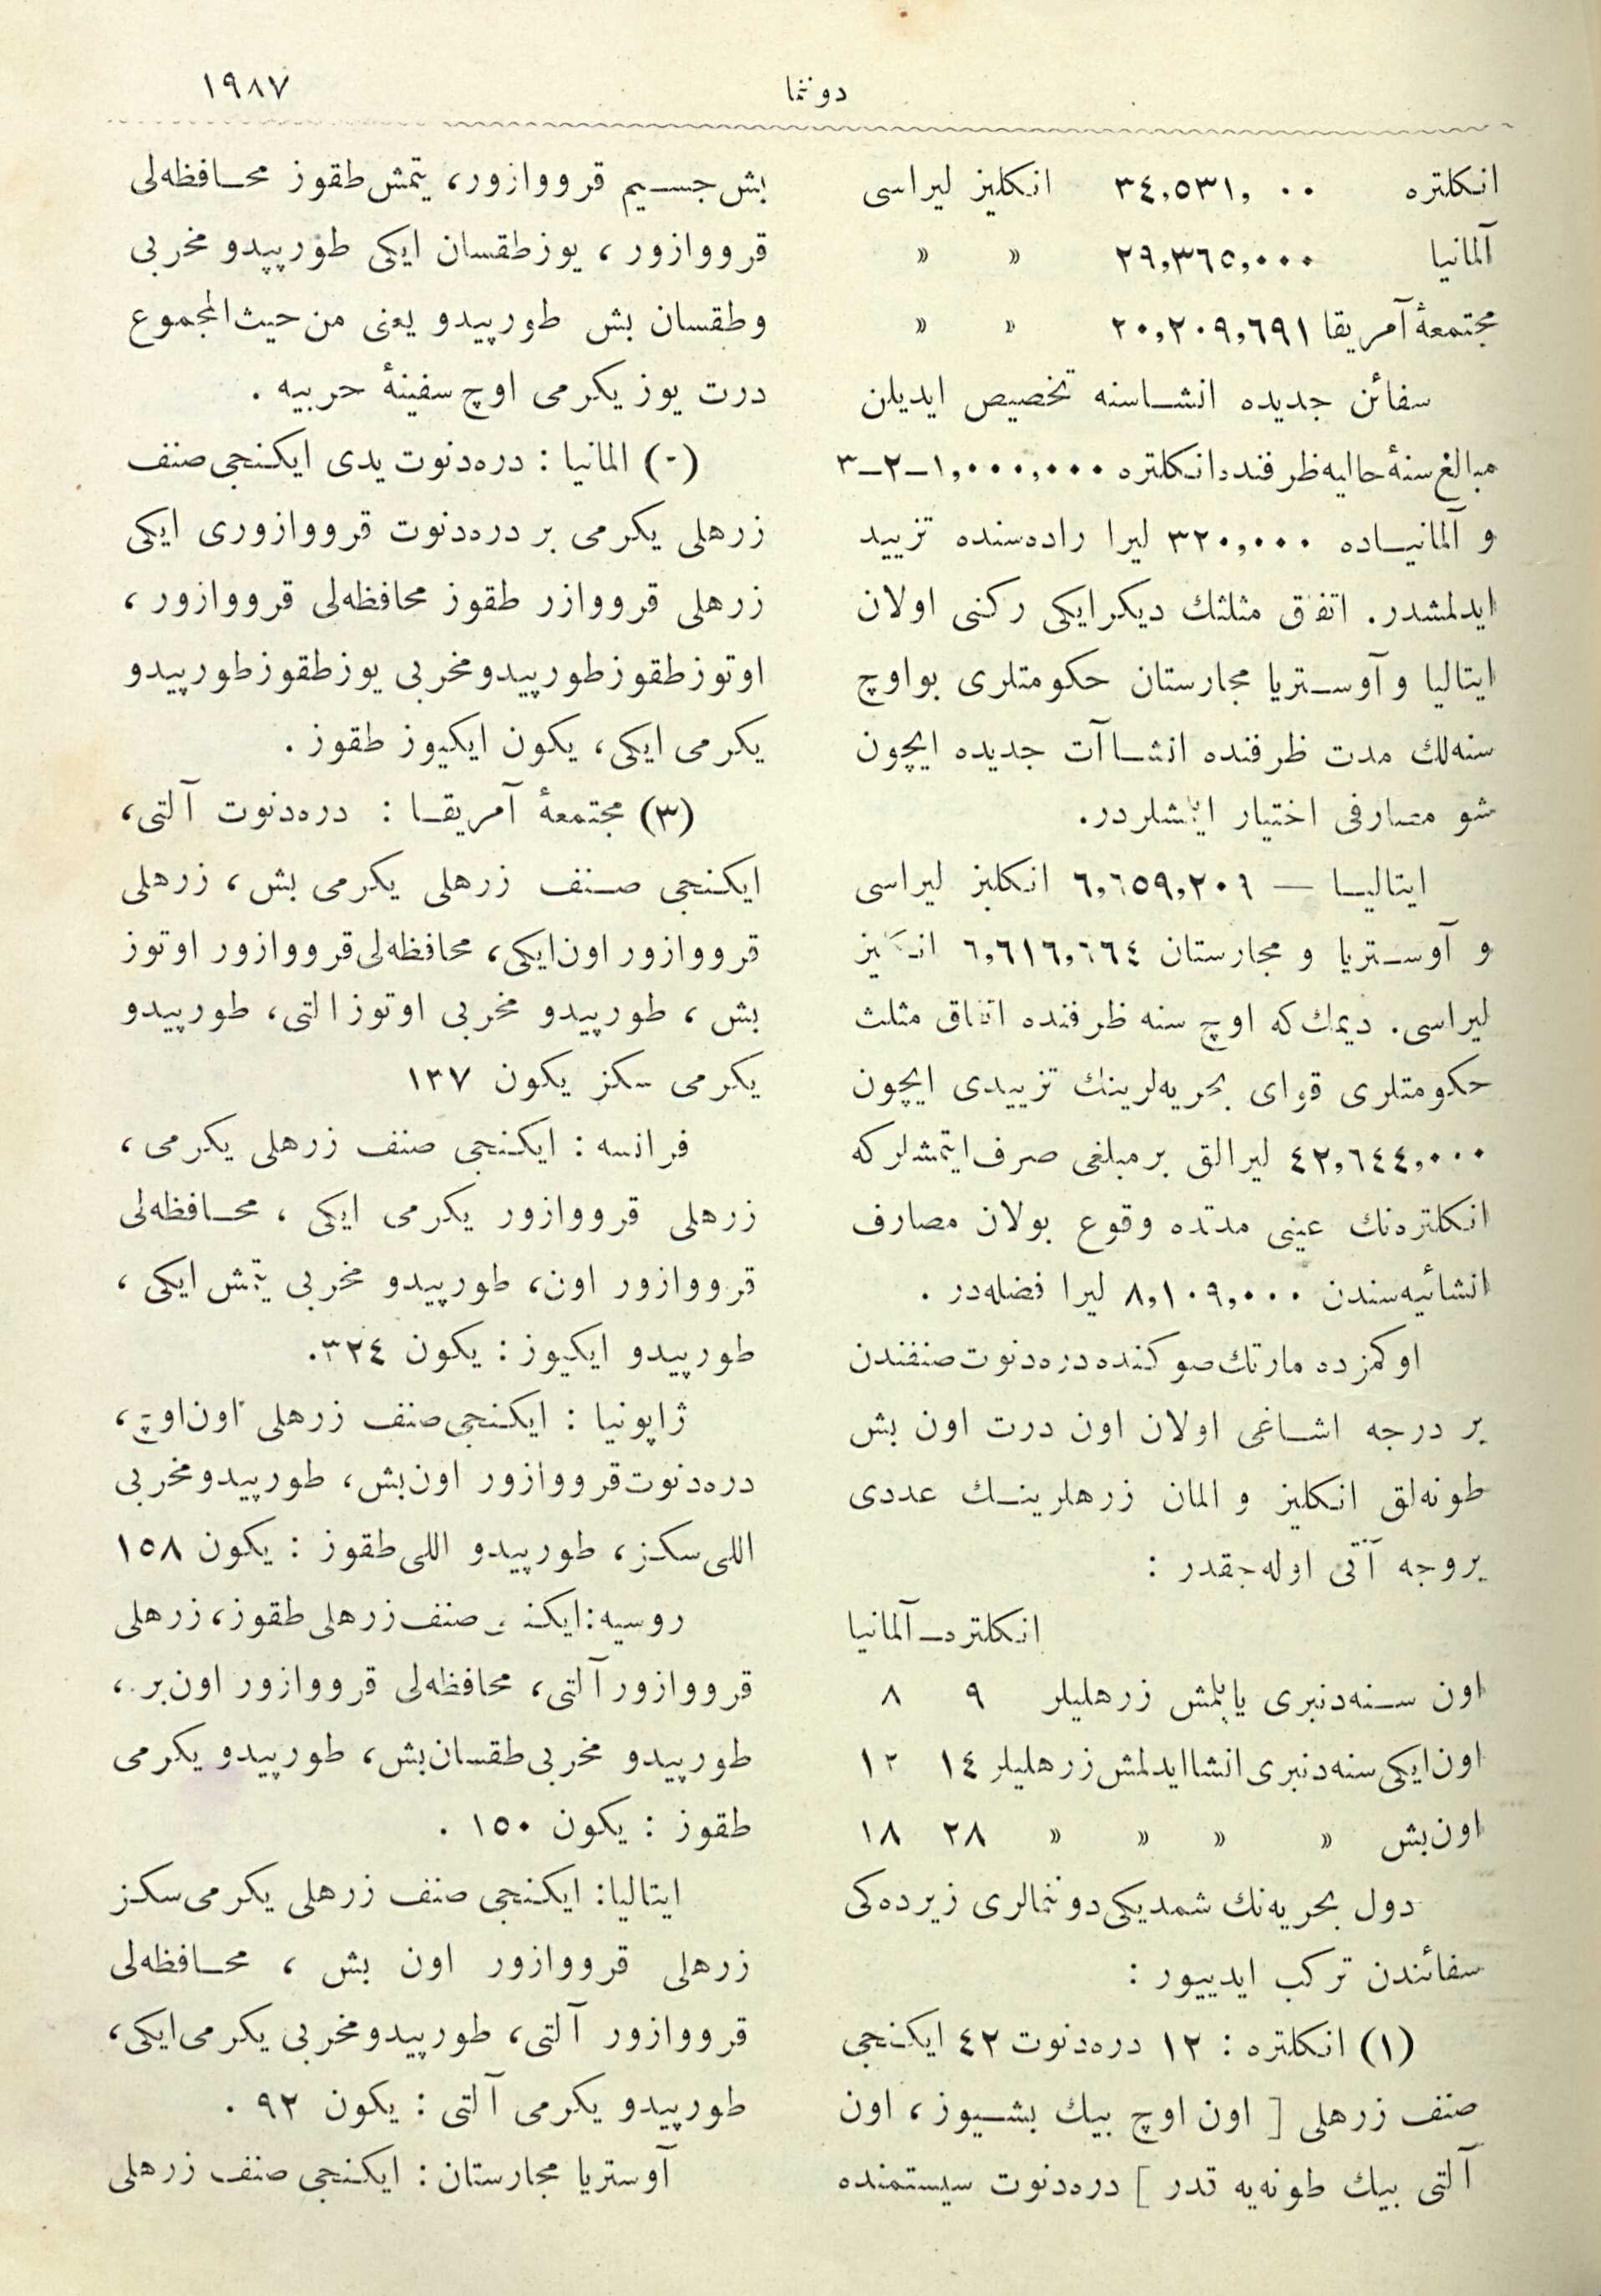 دوننما
١٩٨٧
انكلتره ٣٤,٥٣١, ٠٠ انكليز ليراسى
آلمانيا ٢٩,٣٦٥,٠٠٠ » »
مجتمعهٔ آمريقا ٢٠,٢٠٩,٦٩١ » »
سفائن جديده انشاسنه تخصيص ايديلن
مبالغ سنهٔ حاليه ظرفنده انكلتره ١,٠٠٠,٠٠٠–٢–٣
و آلمانياده ٣٢٠,٠٠٠ ليرا راده‌سنده تزييد
ايدلمشدر. اتفاق مثلثك ديكر ايكى ركنى اولان
ايتاليا و آوستريا مجارستان حكومتلرى بو اوچ
سنه‌لك مدت ظرفنده انشاآت جديده ايچون
شو مصارفى اختيار ايتمشلردر.
ايتاليا — ٦,٦٥٩,٢٠٦ انكليز ليراسى
و آوستريا و مجارستان ٦,٦١٦,٦٦٤ انكليز
ليراسى. ديمك كه اوچ سنه ظرفنده اتفاق مثلث
حكومتلرى قواى بحريه‌لرينك تزييدى ايچون
٤٢,٦٤٤,٠٠٠ ليرالق بر مبلغى صرف ايتمشلر كه
انكلتره‌نك عينى مدتده وقوع بولان مصارف
انشائيه‌سندن ٨,١٠٩,٠٠٠ ليرا فضله‌در .
اوكمزده مارتك صوكنده دره‌دنوت صنفندن
بر درجه اشاغى اولان اون درت اون بش
طونه‌لق انكليز و المان زرهلرينك عددى
بروجه آتى اوله‌جقدر :
انكلتره – آلمانيا
اون سنه‌دنبرى ياپلمش زرهليلر ٩ ٨
اون ايكى سنه‌دنبرى انشا ايدلمش زرهليلر ١٤ ١٢
اون بش » » » » ٢٨ ١٨
دول بحريه‌نك شمديكى دوننمالرى زيرده‌كى
سفائندن تركب ايدييور :
(١) انكلتره : ١٢ دره‌دنوت ٤٢ ايكنجى
صنف زرهلى [ اون اوچ بيك بشيوز ، اون
آلتى بيك طونه‌يه قدر ] دره‌دنوت سيستمنده
بش جسيم قرووازور، يتمش طقوز محافظه‌لى
قرووازور ، يوز طقسان ايكى طورپيدو مخربى
وطقسان بش طورپيدو يعنى من حيث المجموع
درت يوز يكرمى اوچ سفينهٔ حربيه .
(٢) المانيا : دره‌دنوت يدى ايكنجى صنف
زرهلى يكرمى بر دره‌دنوت قرووازورى ايكى
زرهلى قرووازر طقوز محافظه‌لى قرووازور ،
اوتوز طقوز طورپيدو مخربى يوز طقوز طورپيدو
يكرمى ايكى، يكون ايكيوز طقوز .
(٣) مجتمعهٔ آمريقا : دره‌دنوت آلتى،
ايكنجى صنف زرهلى يكرمى بش ، زرهلى
قرووازور اون ايكى، محافظه‌لى قرووازور اوتوز
بش ، طورپيدو مخربى اوتوز التى، طورپيدو
يكرمى سكز يكون ١٣٧
فرانسه : ايكنجى صنف زرهلى يكرمى ،
زرهلى قرووازور يكرمى ايكى ، محافظه‌لى
قرووازور اون، طورپيدو مخربى يتمش ايكى ،
طورپيدو ايكيوز : يكون ٣٢٤.
ژاپونيا : ايكنجى صنف زرهلى اون اوچ ،
دره‌دنوت قرووازور اون بش، طورپيدو مخربى
اللى سكز، طورپيدو اللى طقوز : يكون ١٥٨
روسيه: ايكنجى صنف زرهلى طقوز، زرهلى
قرووازور آلتى، محافظه‌لى قرووازور اون بر ،
طورپيدو مخربى طقسان بش، طورپيدو يكرمى
طقوز : يكون ١٥٠ .
ايتاليا: ايكنجى صنف زرهلى يكرمى سكز
زرهلى قرووازور اون بش ، محافظه‌لى
قرووازور آلتى، طورپيدو مخربى يكرمى ايكى،
طورپيدو يكرمى آلتى : يكون ٩٢ .
آوستريا مجارستان : ايكنجى صنف زرهلى